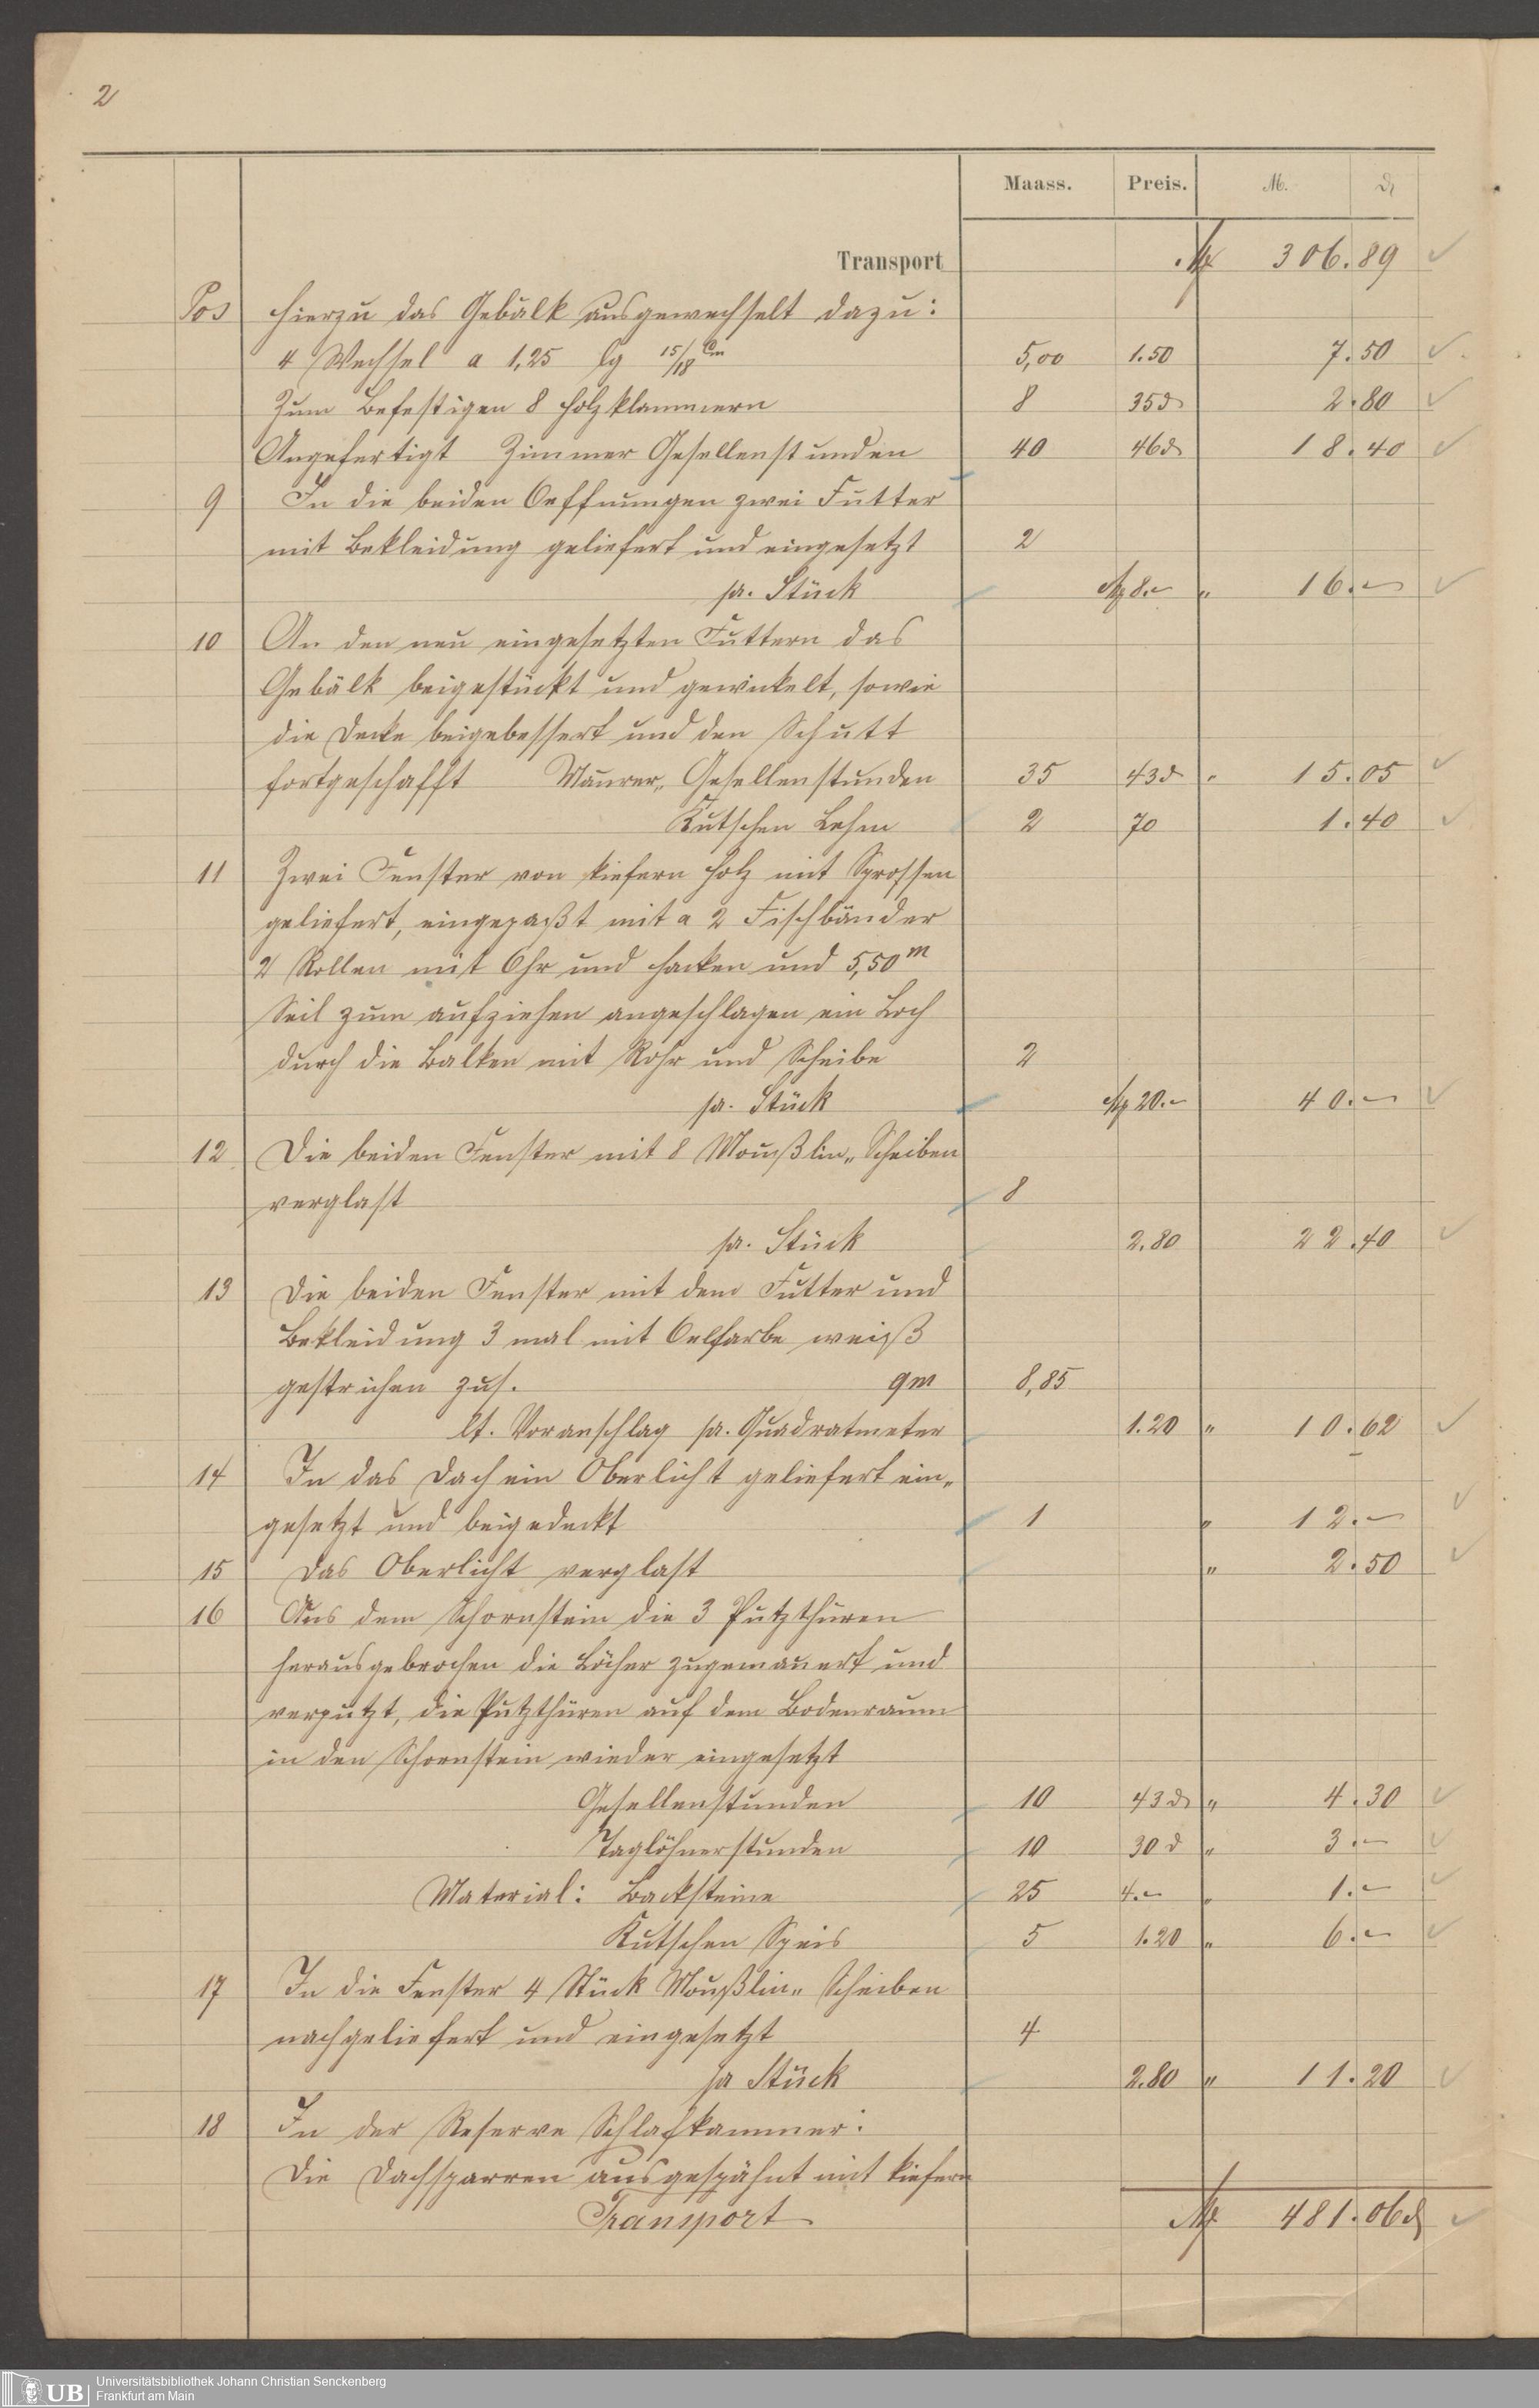 2
Maass. Preis. M. ₰
Transport M 306.89
Pos hierzu das Gebälk ausgewechselt dazu:
4 Wechsel a 1,25 lg 15/18 cm 5,00 1.50 7.50
Zum Befestigen 8 Holzklammern 8 35₰ 2.80
Angefertigt Zimmer Gesellenstunden 40 46₰ 18.40
9 In die beiden Oeffnungen zwei Futter
mit Bekleidung geliefert und eingesetzt 2
pr. Stück M 8.– „ 16.–
10 An den neu eingesetzten Futtern das
Gebälk beigestückt und gewickelt, sowie
die Decke beigebessert und den Schutt
fortgeschafft Maurer„ Gesellenstunden 35 43₰ „ 15.05
Kutschen Lehm 2 70 1.40
11 Zwei Fenster von kiefern Holz mit Sprossen
geliefert, eingepaßt mit a 2 Fischbänder
2 Rollen mit Ohr und Hacken und 5,50 m
Seil zum aufziehen angeschlagen ein Loch
durch die Balken mit Rohr und Scheibe 2
pr. Stück M 20.– 40.–
12 Die beiden Fenster mit 8 Moußlin„ Scheiben
verglast 8
pr. Stück 2.80 22.40
13 Die beiden Fenster mit dem Futter und
Bekleidung 3 mal mit Oelfarbe weiß
gestrichen zus. qm 8,85
lt. Voranschlag pr. Quadratmeter 1.20 „ 10.62
14 In das Dach ein Oberlicht geliefert ein„
gesetzt und beigedeckt 1 „ 12.–
15 Das Oberlicht verglast „ 2.50
16 Aus dem Schornstein die 3 Putzthüren
herausgebrochen die Löcher zugemauert und
verputzt, die Putzthüren auf dem Bodenraum
in den Schornstein wieder eingesetzt
Gesellenstunden 10 43₰ „ 4.30
Taglöhnerstunden 10 30₰ „ 3.–
Material: Backsteine 25 4.– „ 1.–
Kutschen Speis 5 1.20 „ 6.–
17 In die Fenster 4 Stück Moußlin„ Scheiben
nachgeliefert und eingesetzt 4
pr Stück 2.80 „ 11.20
18 In der Reserve Schlafkammer:
Die Dachsparren ausgespähnt mit kiefern
Transport M 481.06₰
UB Universitätsbibliothek Johann Christian Senckenberg
Frankfurt am Main